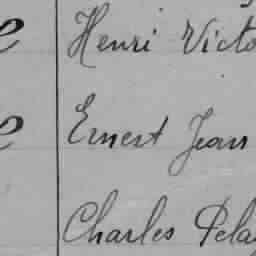 Henri Victo
Ernest Jean
Charles Pelag